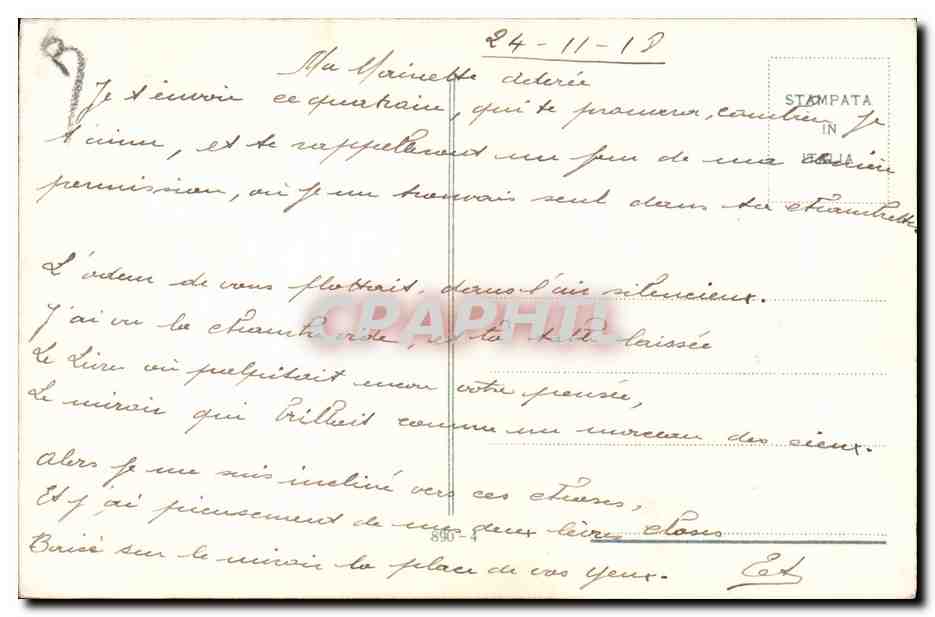 24-11-18
Ma Morinette adorée
STAMPATA
IN
ITALIA
Je t'envoir ce quatrain, qui te prouvera, combien je
t'aime, et te rappellerant un peu de ma
permission, où je me trouvais seul dans ta chambrette.
L'odeur de vous flottait, dans l'air silencieux.
J'ai vu la chambre vide, et la table laissée
Le Livre où palpitait encor votre pensée,
Le miroir qui brillait comme un morceau des cieux.
Alors je me suis incliné vers ces choses,
Et j'ai pieusement de mes deux lèvres closes
890-4
Baisé sur le miroir la place de vos yeux.
CPAPHIL